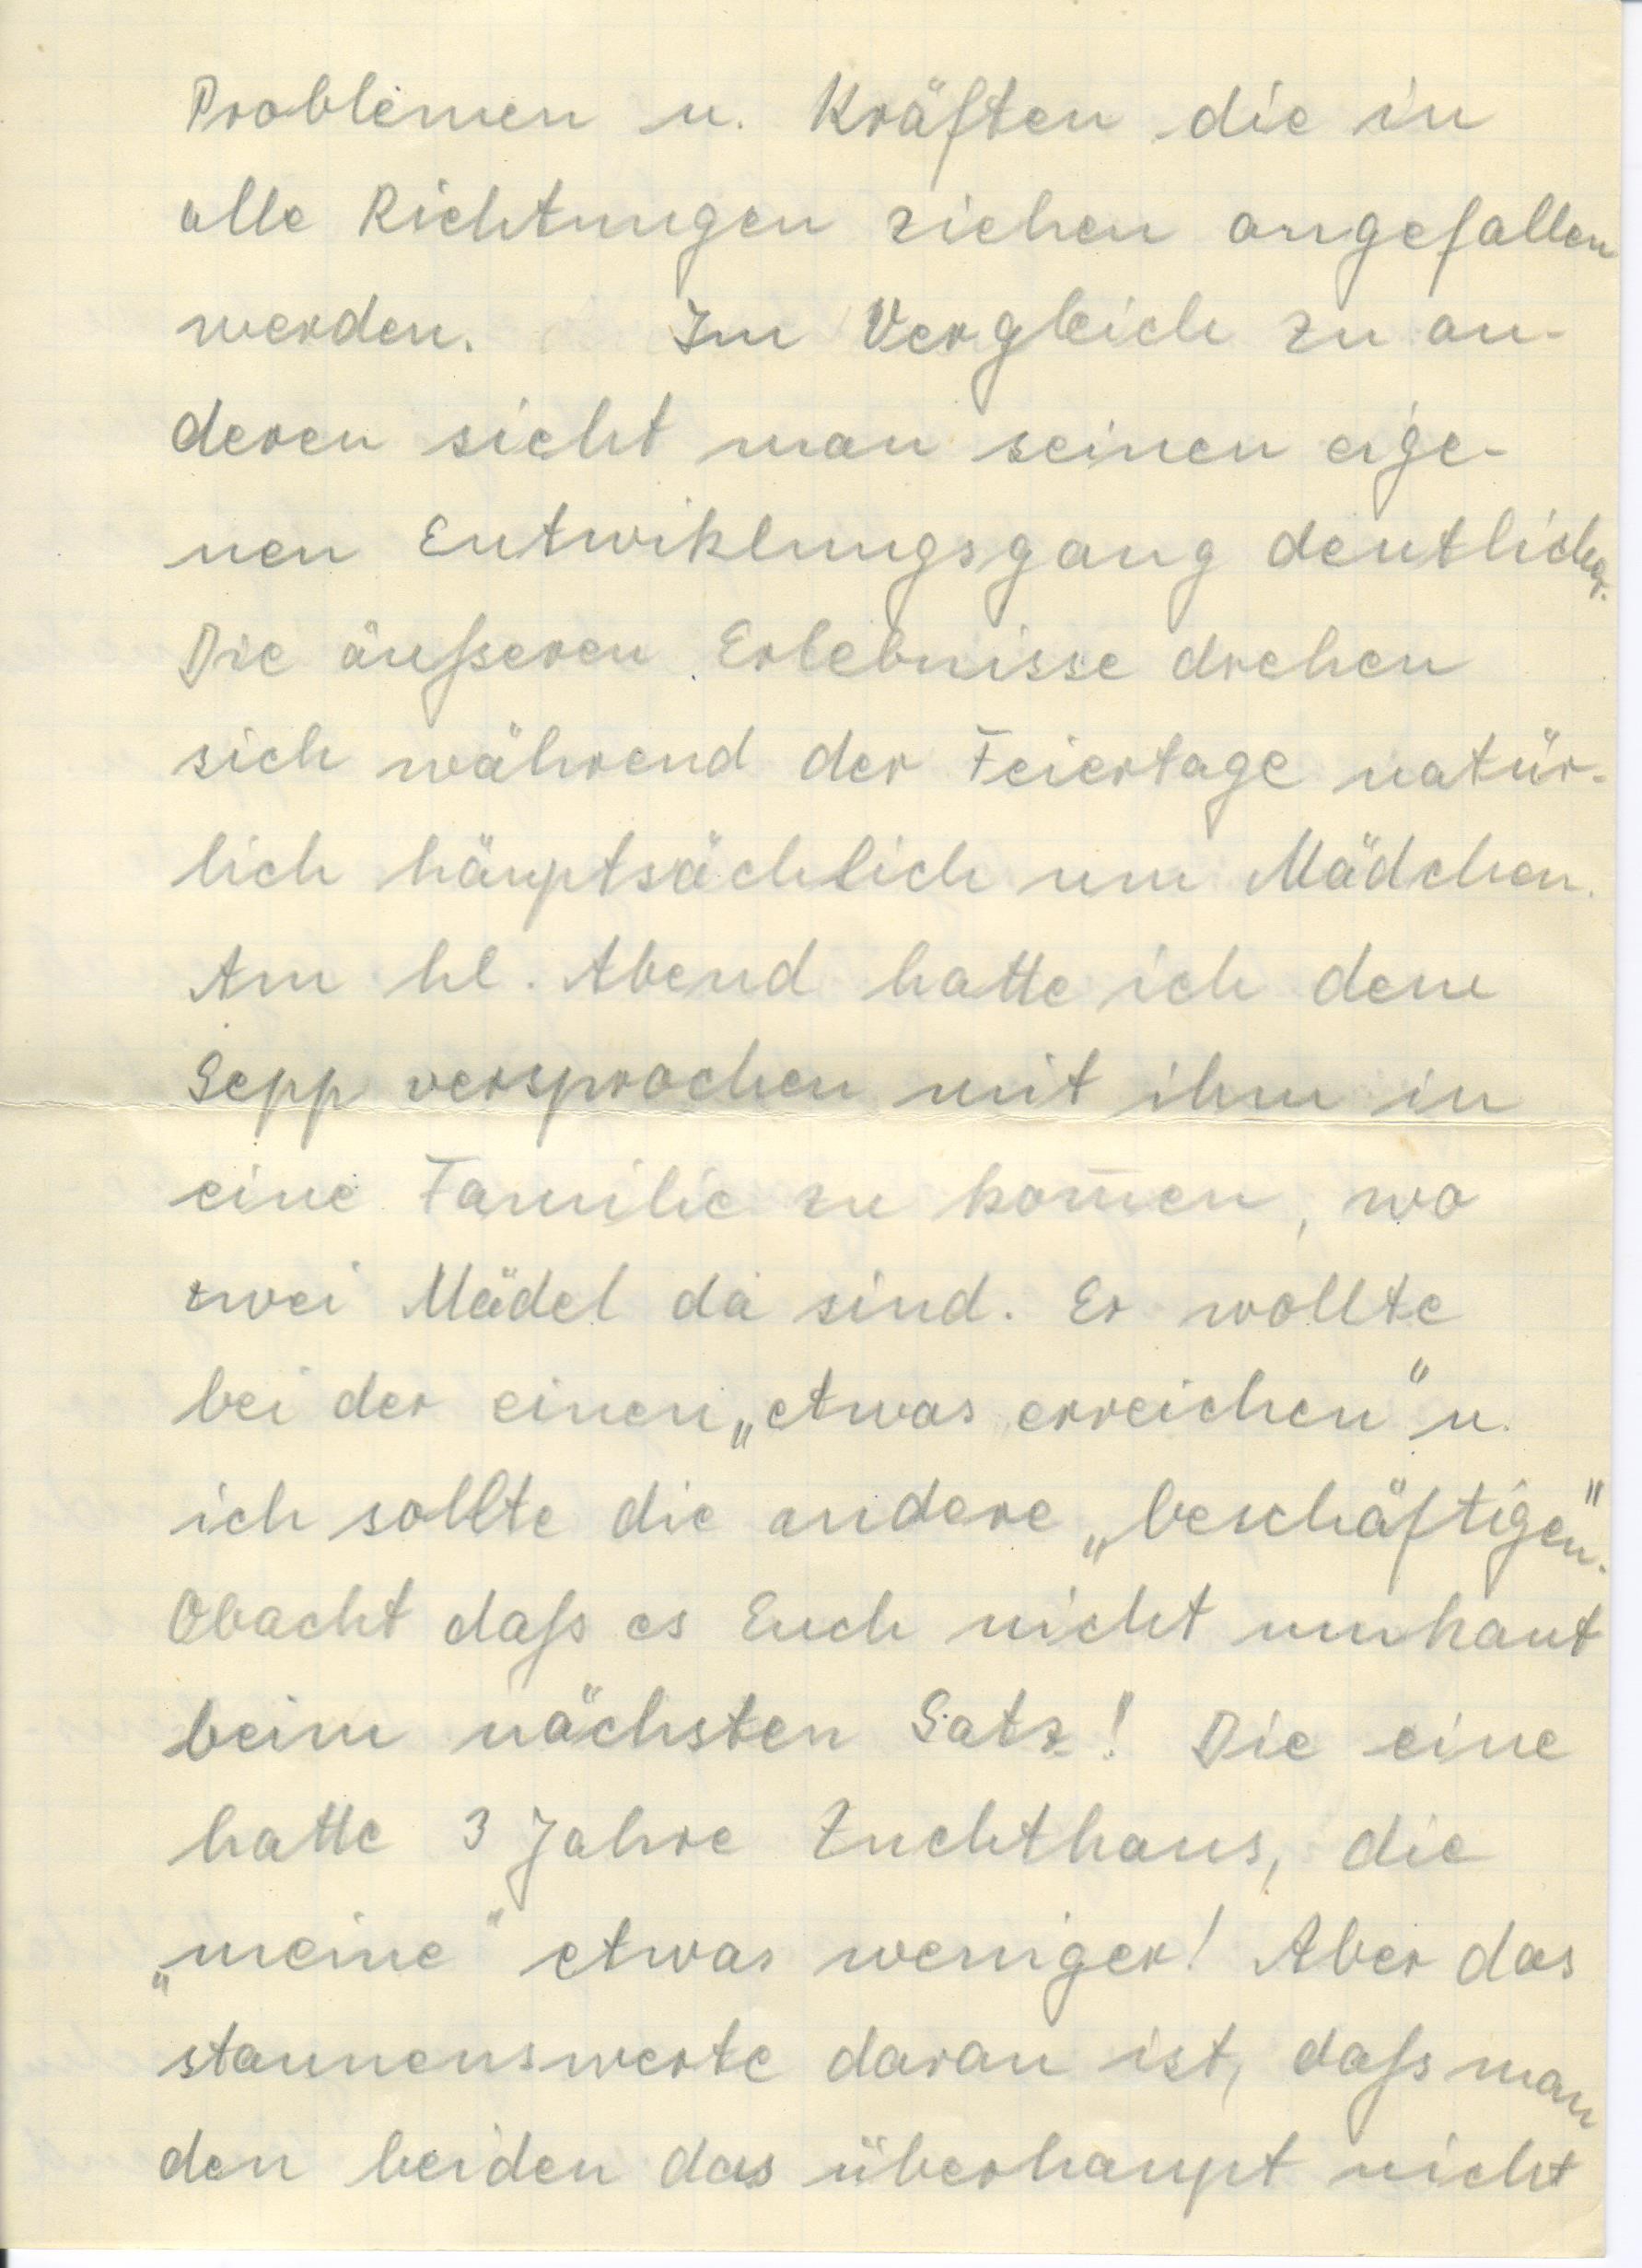 Problemen u. Kräften die in
alle Richtungen ziehen angefallen
werden. Im Vergleich zu an-
deren sieht man seinen eige-
nen Entwiklungsgang deutlicher.
Die äußeren Erlebnisse drehen
sich während der Feiertage natür-
lich häuptsächlich um Mädchen.
Am hl. Abend hatte ich dem
Sepp versprochen mit ihm in
eine Familie zu kom̄en, wo
zwei Mädel da sind. Er wollte
bei der einen „etwas erreichen" u.
ich sollte die andere „beschäftigen".
Obacht daß es Euch nicht umhaut
beim nächsten Satz! Die eine
hatte 3 Jahre Zuchthaus, die
„meine" etwas weniger! Aber das
staunenswerte daran ist, daß man
den beiden das überhaupt nicht